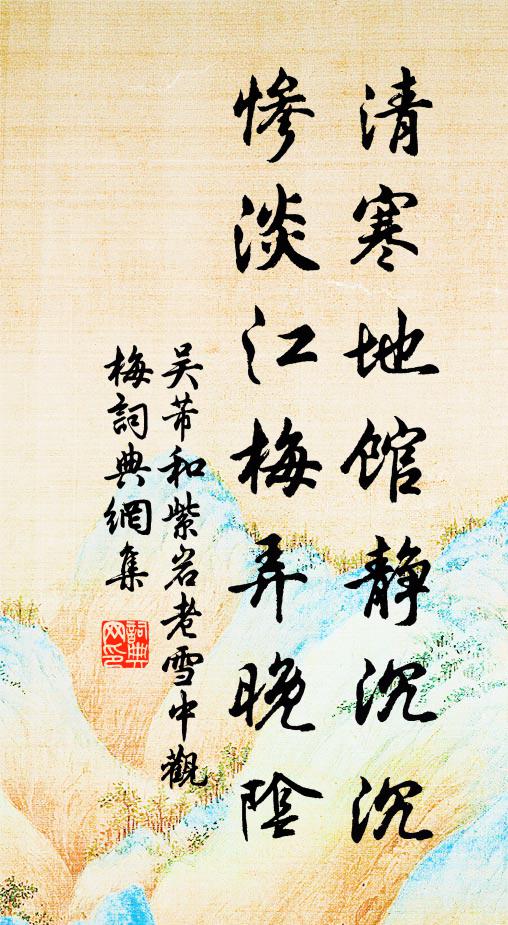 清寒地館静沉沉
惨淡江梅弄晚陰
吴芾和紫岩老雪中觀
梅詞典網集
詞典网印